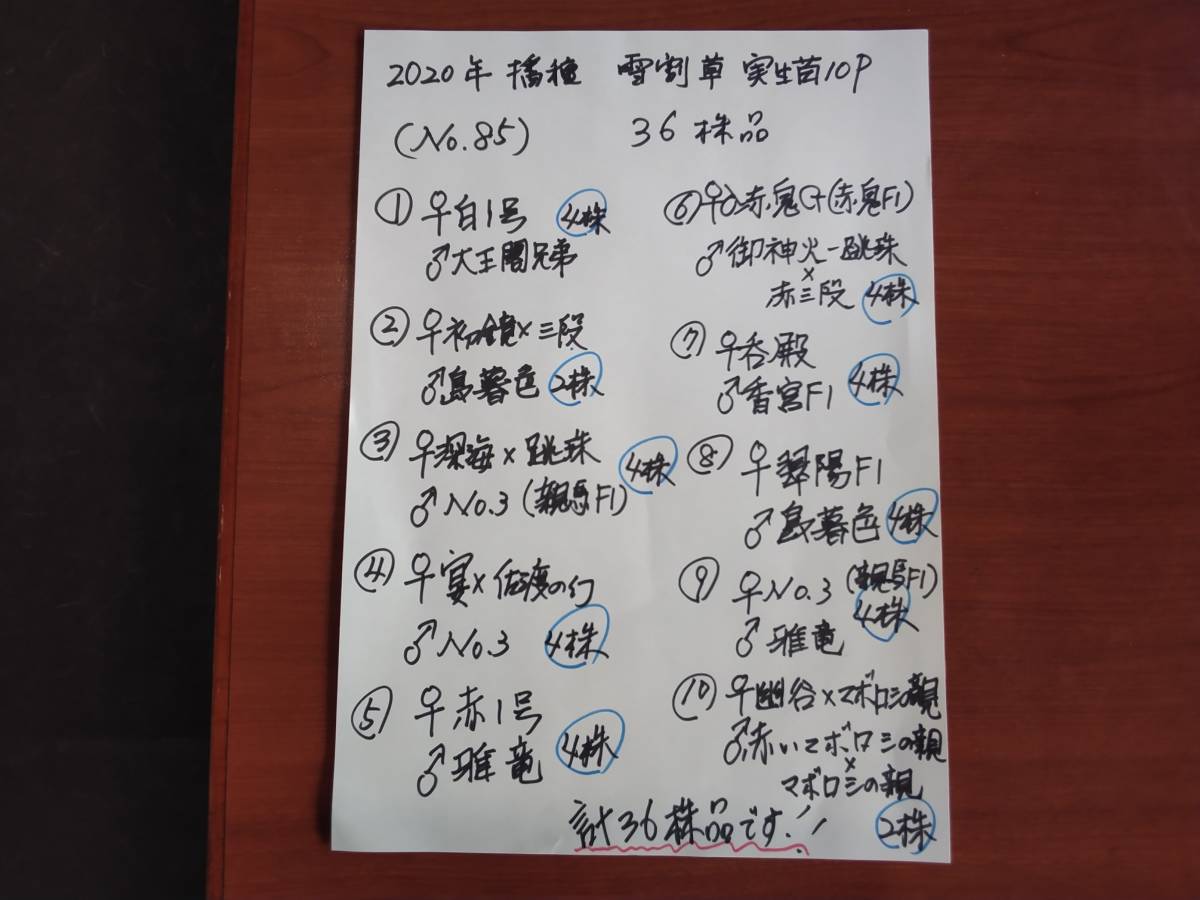 2020年 播種 雪割草 実生苗10P
(No.85) 36株品
① ♀白1号 4株
♂大王閣兄弟
② ♀初鏡×三段
♂島暮色 2株
③ ♀深海×跳珠 4株
♂No.3(親馬F1)
④ ♀宴×佐渡の幻
♂No.3 4株
⑤ ♀赤1号
♂雅竜 4株
⑥ ♀赤鬼(赤鬼F1)
♂御神火-跳珠
×
赤三段 4株
⑦ ♀呑殿
♂香宮F1 4株
⑧ ♀翠陽F1
♂島暮色 4株
⑨ ♀No.3(親馬F1)
♂雅竜 4株
⑩ ♀幽谷×マボロシの親
♂赤いマボロシの親
×
マボロシの親
2株
計36株品です!!